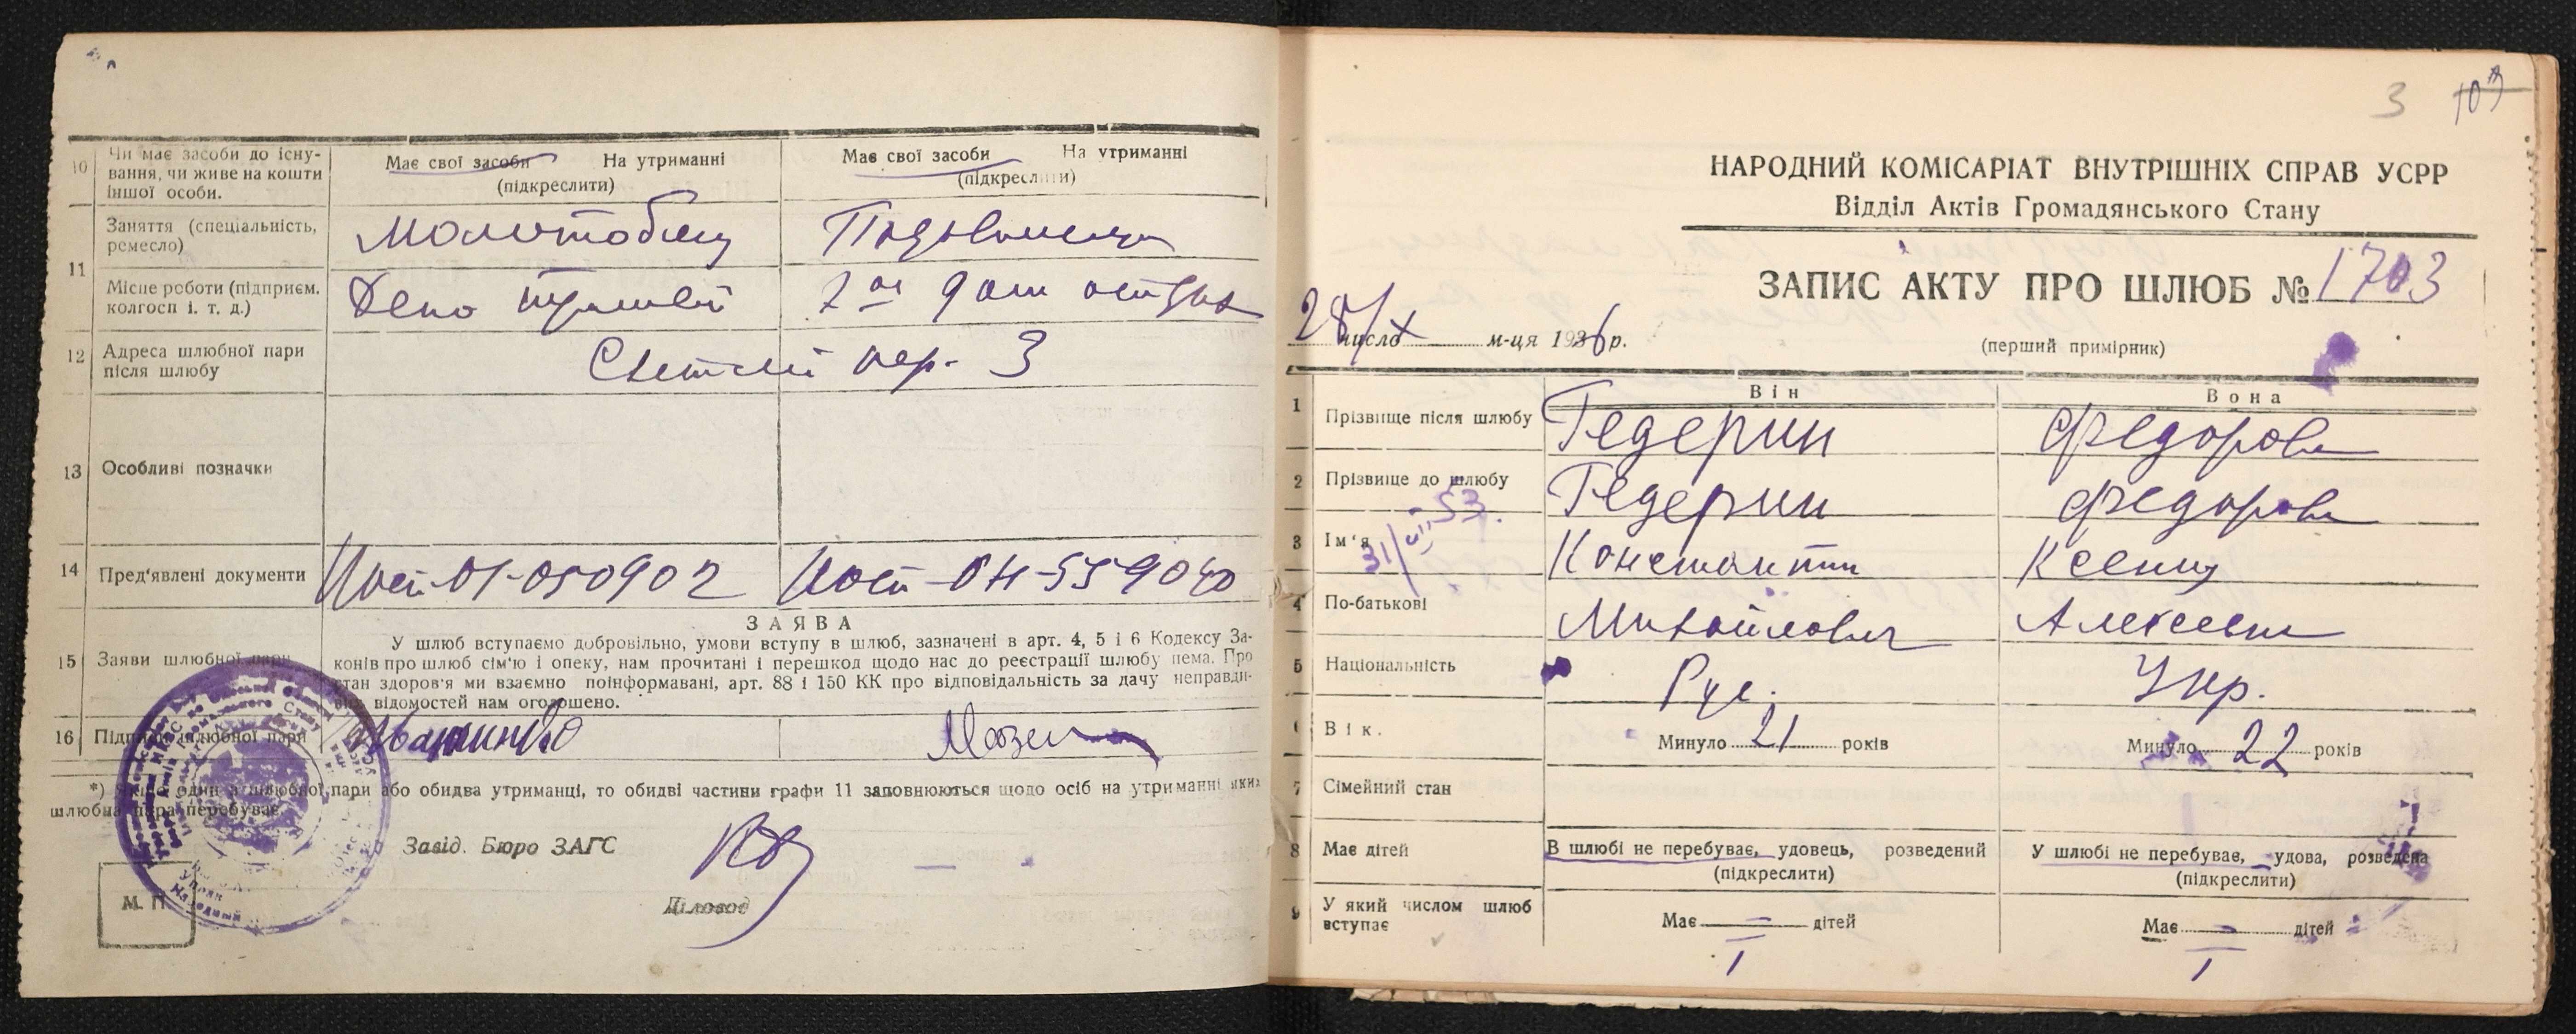 10 Чи має засоби до існу-
вання, чи живе на кошти
іншої особи.
Має свої засоби На утриманні
(підкреслити)
Має свої засоби На утриманні
(підкреслити)
11 Заняття (спеціальність,
ремесло)
Молотобоец
Місце роботи (підприєм.
колгосп і. т. д.)
Депо
12 Адреса шлюбної пари
після шлюбу
пер. 3
13 Особливі позначки
14 Пред'явлені документи
ЗАЯВА
15 Заяви шлюбної пари
У шлюб вступаємо добровільно, умови вступу в шлюб, зазначені в арт. 4, 5 і 6 Кодексу За-
конів про шлюб сім'ю і опеку, нам прочитані і перешкод щодо нас до реєстрації шлюбу нема. Про
стан здоров'я ми взаємно поінформавані, арт. 88 і 150 КК про відповідальність за дачу неправди-
вих відомостей нам оголошено.
16 Підписи шлюбної пари
*) Якщо один з шлюбної пари або обидва утриманці, то обидві частини графи 11 заповнюються щодо осіб на утриманні яких
шлюбна пара перебуває.
Завід. Бюро ЗАГС
Діловод
М. П.
3 103
НАРОДНИЙ КОМІСАРІАТ ВНУТРІШНІХ СПРАВ УСРР
Відділ Актів Громадянського Стану
ЗАПИС АКТУ ПРО ШЛЮБ № 1703
28/X число м-ця 1936 р.
(перший примірник)
Він Вона
1 Прізвище після шлюбу Гедерин Федорова
2 Прізвище до шлюбу Гедерин Федорова
31/VIII-53.
3 Ім'я Константин Ксения
4 По-батькові Михайлович Алексеевна
5 Національність Рус. Укр.
6 Вік. Минуло 21 років Минуло 22 років
7 Сімейний стан
8 Має дітей
В шлюбі не перебуває, удовець, розведений
(підкреслити)
У шлюбі не перебуває, удова, розведена
(підкреслити)
9 У який числом шлюб
вступає
Має — дітей
I
Має — дітей
I